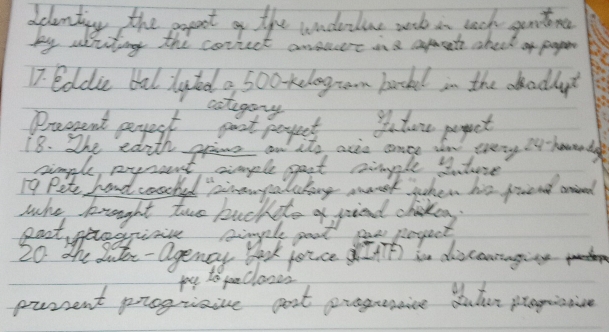 Identify the aspect of the underline verb in each sentence
by writing the correct answer in a separate sheet of paper
17. Eddie Hal lifted a 500-kelogram barbel in the deadlift
category
Pressent perfect past perfect Future perfect
18. The earth spins on its axis once in every 24-hours
simple pressent simple past simple Future
19 Pete had cooked "sinampalukang manok when his friend
who brought two buckets of fried chicken.
past, progrisive simple past past perfect
20. The Inter-Agency Task force (IATF) is discouraging
to
pressent progrisive past progressive Futur progrissive